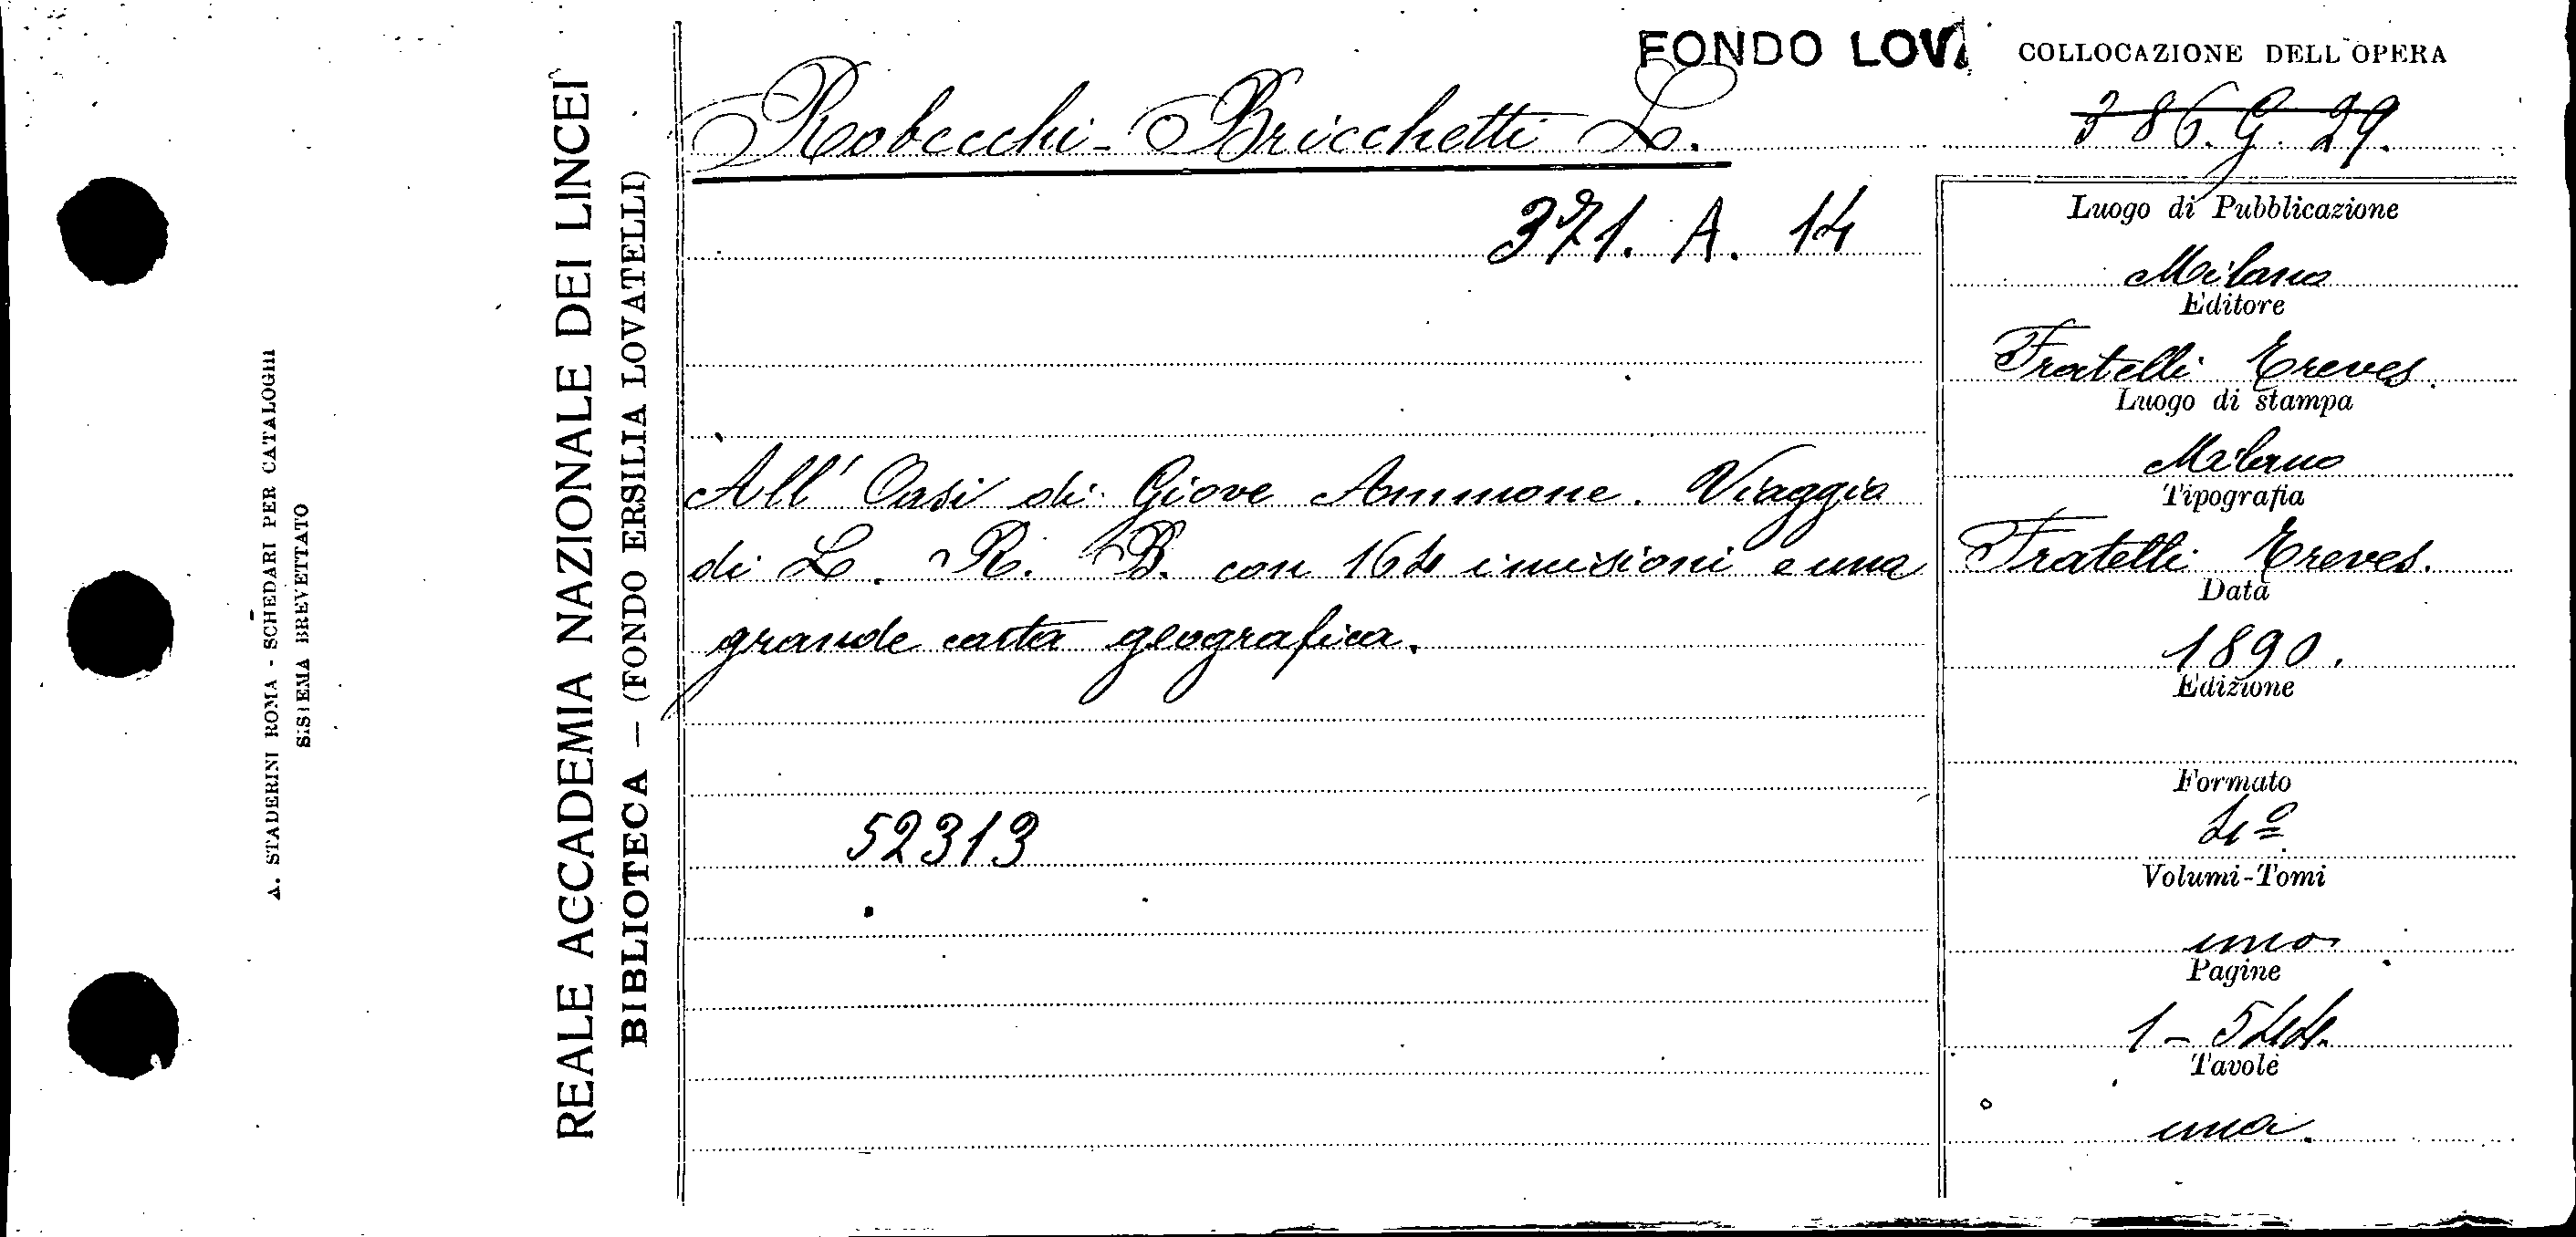 FONDO LOVA
COLLOCAZIONE DELL'OPERA
Robecchi-Bricchetti L.
386. G. 29.
371. A. 14
All' Oasi di Giove Ammone. Viaggio
di L. R. B. con 164 incisioni e una
grande carta geografica.
52313
Luogo di Pubblicazione
Milano
Editore
Fratelli Treves.
Luogo di stampa
Milano
Tipografia
Fratelli Treves.
Data
1890.
Edizione
Formato
4º
Volumi-Tomi
uno
Pagine
1-544.
Tavole
una.
REALE ACCADEMIA NAZIONALE DEI LINCEI
BIBLIOTECA — (FONDO ERSILIA LOVATELLI)
A. STADERINI ROMA - SCHEDARI PER CATALOGHI
SISTEMA BREVETTATO